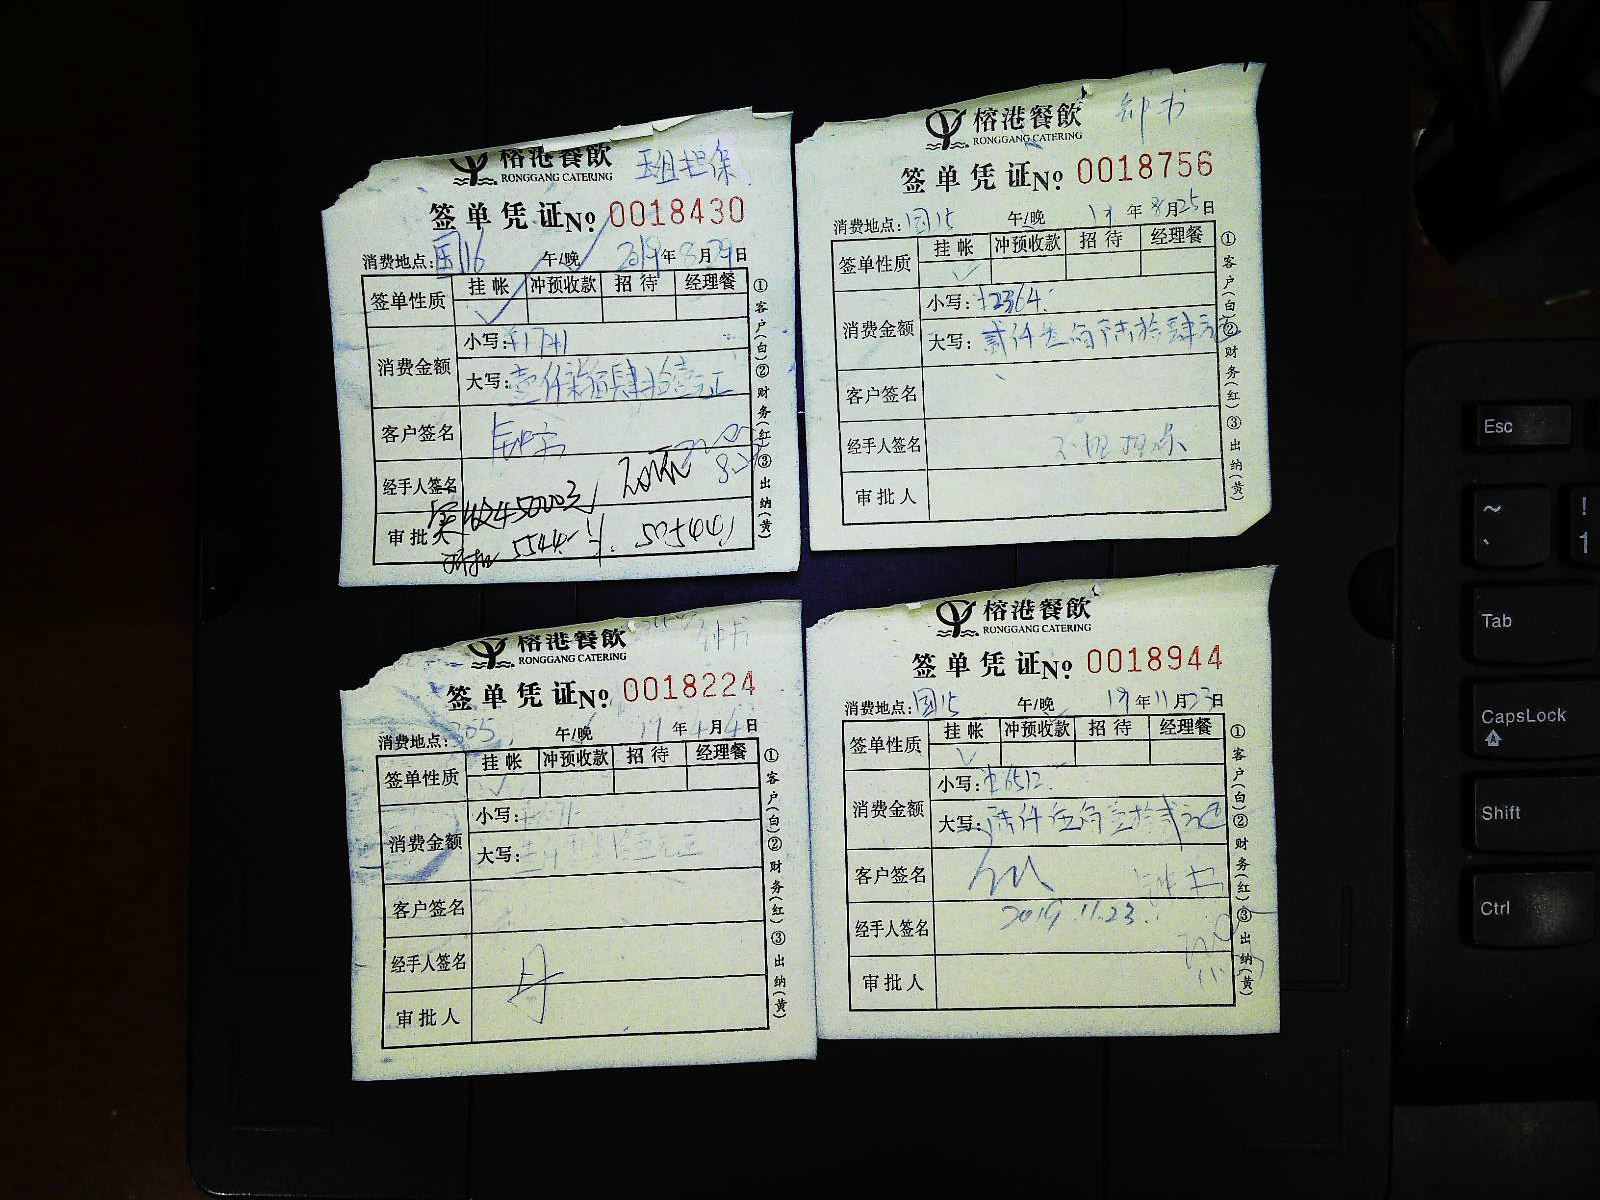 榕港餐飲
RONGGANG CATERING
担保
签单凭证No: 0018430
消费地点: 国16 午/晚 2019年8月29日
签单性质 挂帐 冲预收款 招待 经理餐
消费金额 小写: ¥1741
大写: 壹仟柒佰肆拾壹元正
客户签名
经手人签名
审批
①客户(白)②财务(红)③出纳(黄)
榕港餐飲 钟书
RONGGANG CATERING
签单凭证No: 0018756
消费地点: 国15 午/晚 19年8月25日
签单性质 挂帐 冲预收款 招待 经理餐
消费金额 小写: ¥2364.
大写: 贰仟叁佰陆拾肆元
客户签名
经手人签名 担保
审批人
①客户(白)②财务(红)③出纳(黄)
榕港餐飲 钟书
RONGGANG CATERING
签单凭证No: 0018224
消费地点: 305 午/晚 年4月4日
签单性质 挂帐 冲预收款 招待 经理餐
消费金额 小写:
大写:
客户签名
经手人签名
审批人
①客户(白)②财务(红)③出纳(黄)
榕港餐飲
RONGGANG CATERING
签单凭证No: 0018944
消费地点: 国15 午/晚 19年11月23日
签单性质 挂帐 冲预收款 招待 经理餐
消费金额 小写: ¥6512.
大写: 陆仟伍佰壹拾贰元
客户签名 钟书
经手人签名 2019.11.23.
审批人
①客户(白)②财务(红)③出纳(黄)
Esc
~
、
!
1
Tab
CapsLock
A
Shift
Ctrl